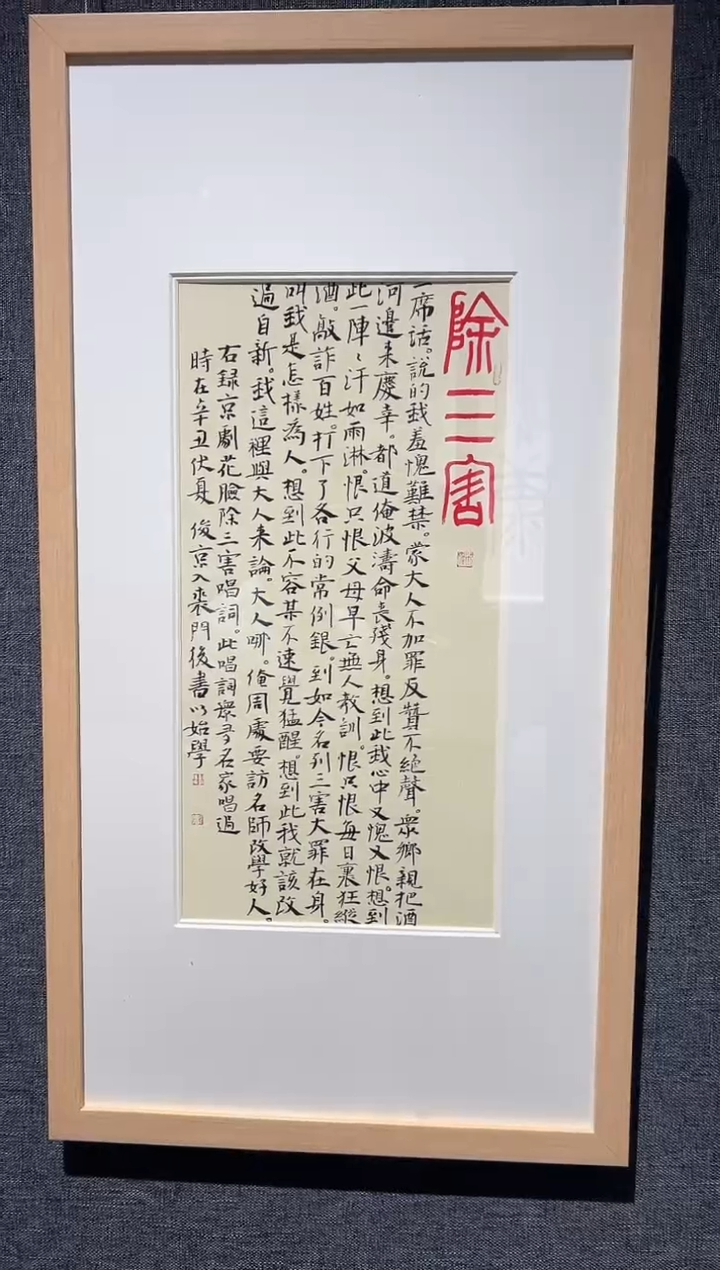 除三害
一席话。說的我羞愧難禁。蒙大人不加罪反贊不絕聲。眾鄉親把酒
河邊来慶幸。都道俺波濤命喪殘身。想到此我心中又愧又恨。想到
此一陣〻汗如雨淋。恨只恨父母早亡無人教訓。恨只恨每日裏狂縱
酒。敲詐百姓。打下了各行的常例銀。到如今名列三害大罪在身。
叫我是怎樣為人。想到此不容某不速覺猛醒。想到此我就該改
過自新。我這裡與大人来論。大人哪。俺周處要訪名師改學好人。
右録京劇花臉除三害唱詞。此唱詞眾多名家唱過
時在辛丑伏夏 俊京入裘門後書以始學